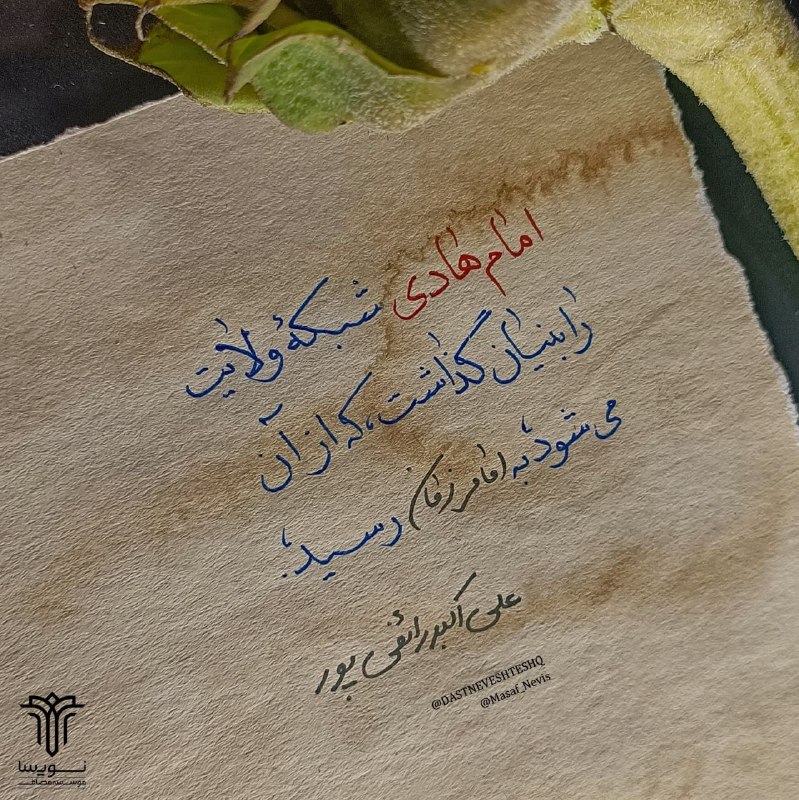 امام هادی شبکهٔ ولایت
را بنیان گذاشت، که از آن
می‌شود، به امام زمان رسید؛
علی اکبر رائفی پور
@DASTNEVESHTESHQ
@Masaf_Nevis
نویسا
موسسه مصاف